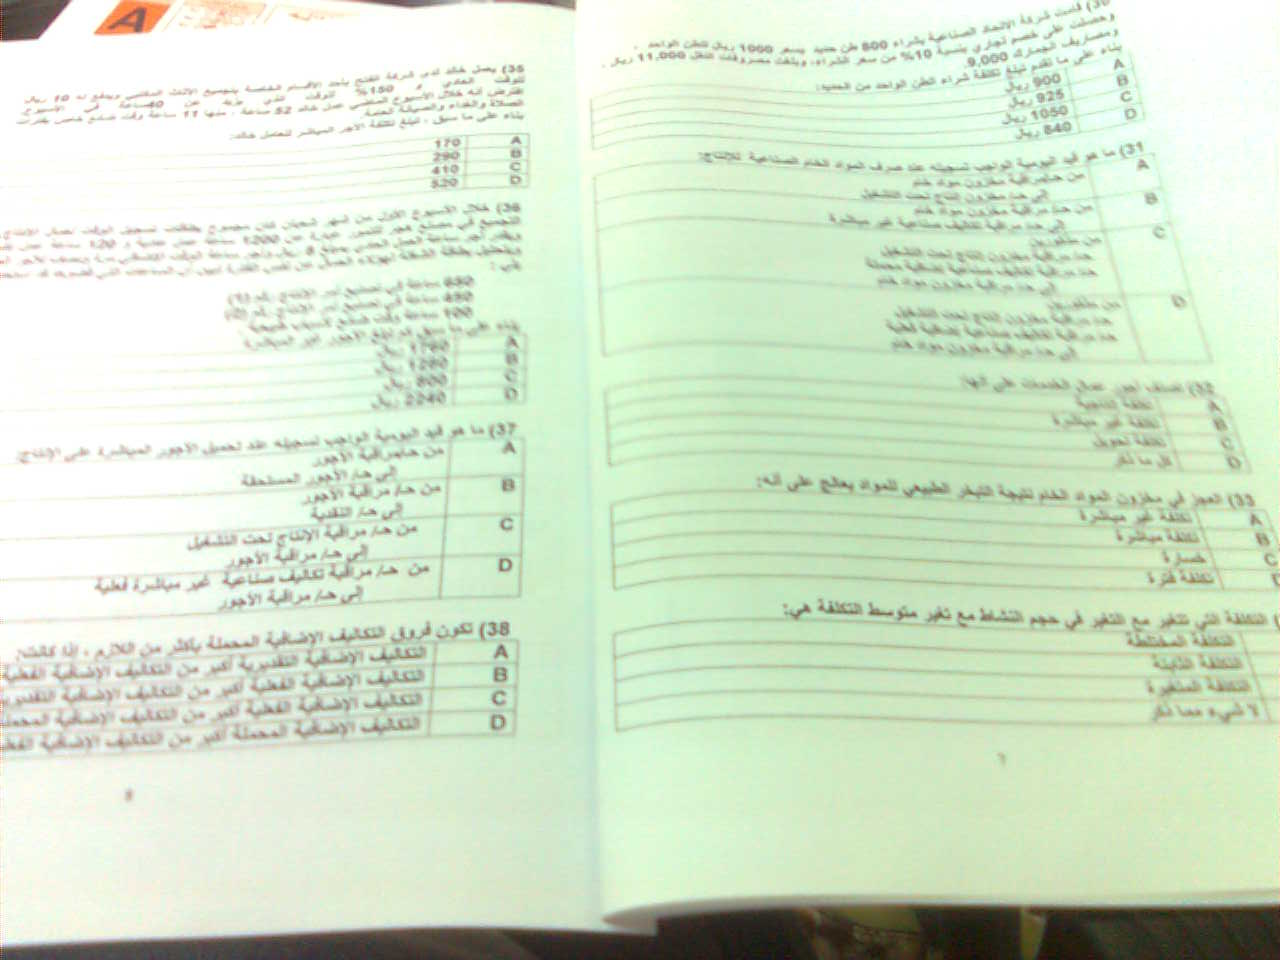 30) قامت شركة الاتحاد الصناعية بشراء 800 طن حديد بسعر 1000 ريال للطن الواحد ،
وحصلت على خصم تجاري بنسبة 10% من سعر الشراء، وبلغت مصروفات النقل 11,000 ريال ،
ومصاريف الجمارك 9,000.
بناء على ما تقدم تبلغ تكلفة شراء الطن الواحد من الحديد:
A 900 ريال
B 925 ريال
C 1050 ريال
D 840 ريال
31) ما هو قيد اليومية الواجب تسجيله عند صرف المواد الخام الصناعية للإنتاج:
A من حـ/مراقبة مخزون مواد خام
إلى حـ/ مراقبة مخزون إنتاج تحت التشغيل
B من حـ/ مراقبة مخزون مواد خام
إلى حـ/ مراقبة تكاليف صناعية غير مباشرة
C من مذكورين
حـ/ مراقبة مخزون إنتاج تحت التشغيل
حـ/ مراقبة تكاليف صناعية إضافية محملة
إلى حـ/ مراقبة مخزون مواد خام
D من مذكورين
حـ/ مراقبة مخزون إنتاج تحت التشغيل
حـ/ مراقبة تكاليف صناعية إضافية فعلية
إلى حـ/ مراقبة مخزون مواد خام
32) تصنف أجور عمال الخدمات على أنها:
A تكلفة إنتاجية
B تكلفة غير مباشرة
C تكلفة تحويل
D كل ما ذكر
33) العجز في مخزون المواد الخام نتيجة التبخر الطبيعي للمواد يعالج على أنه:
A تكلفة غير مباشرة
B تكلفة مباشرة
C خسارة
D تكلفة فترة
التكلفة التي تتغير مع التغير في حجم النشاط مع تغير متوسط التكلفة هي:
التكلفة المختلطة
التكلفة الثابتة
التكلفة المتغيرة
لا شيء مما ذكر
7
35) يعمل خالد لدى شركة الفتح بأحد الأقسام الخاصة بتجميع الأثاث المكتبي ويدفع له 10 ريال
للوقت العادي و 150% للوقت الذي يزيد عن 40ساعة في الأسبوع.
بفرض أنه خلال الأسبوع الماضي عمل خالد 52 ساعة ، منها 11 ساعة وقت ضائع خاص بفترات
الصلاة والغداء والصيانة العامة.
بناء على ما سبق ، تبلغ تكلفة الأجر المباشر للعامل خالد:
A 170
B 290
C 410
D 520
36) خلال الأسبوع الأول من شهر شعبان كان مجموع بطاقات تسجيل الوقت لعمال الإنتاج
التجميع في مصنع هجر للتمور عبارة عن 1200 ساعة عمل عادية و 120 ساعة عمل
ساعة في تصنيع أمر الإنتاج رقم (1)
450 ساعة في تصنيع أمر الإنتاج رقم
100 ساعة وقت ضائع لأسباب طبيعية
بناء على ما سبق كم تبلغ الأجور غير المباشرة
A 1760 ريال
B 1280 ريال
C 800 ريال
D 2240 ريال
37) ما هو قيد اليومية الواجب تسجيله عند تحميل الأجور المباشرة على الإنتاج:
A من حـ/مراقبة الأجور
إلى حـ/ الأجور المستحقة
B من حـ/ مراقبة الأجور
إلى حـ/ النقدية
C من حـ/ مراقبة الإنتاج تحت التشغيل
إلى حـ/ مراقبة الأجور
D من حـ/ مراقبة تكاليف صناعية غير مباشرة فعلية
إلى حـ/ مراقبة الأجور
38) تكون فروق التكاليف الإضافية المحملة بأكثر من اللازم ، إذا كانت:
A التكاليف الإضافية التقديرية أكبر من التكاليف الإضافية الفعلية
B التكاليف الإضافية الفعلية أكبر من التكاليف الإضافية التقديرية
C التكاليف الإضافية الفعلية أكبر من التكاليف الإضافية المحملة
D التكاليف الإضافية المحملة أكبر من التكاليف الإضافية الفعلية
8
A